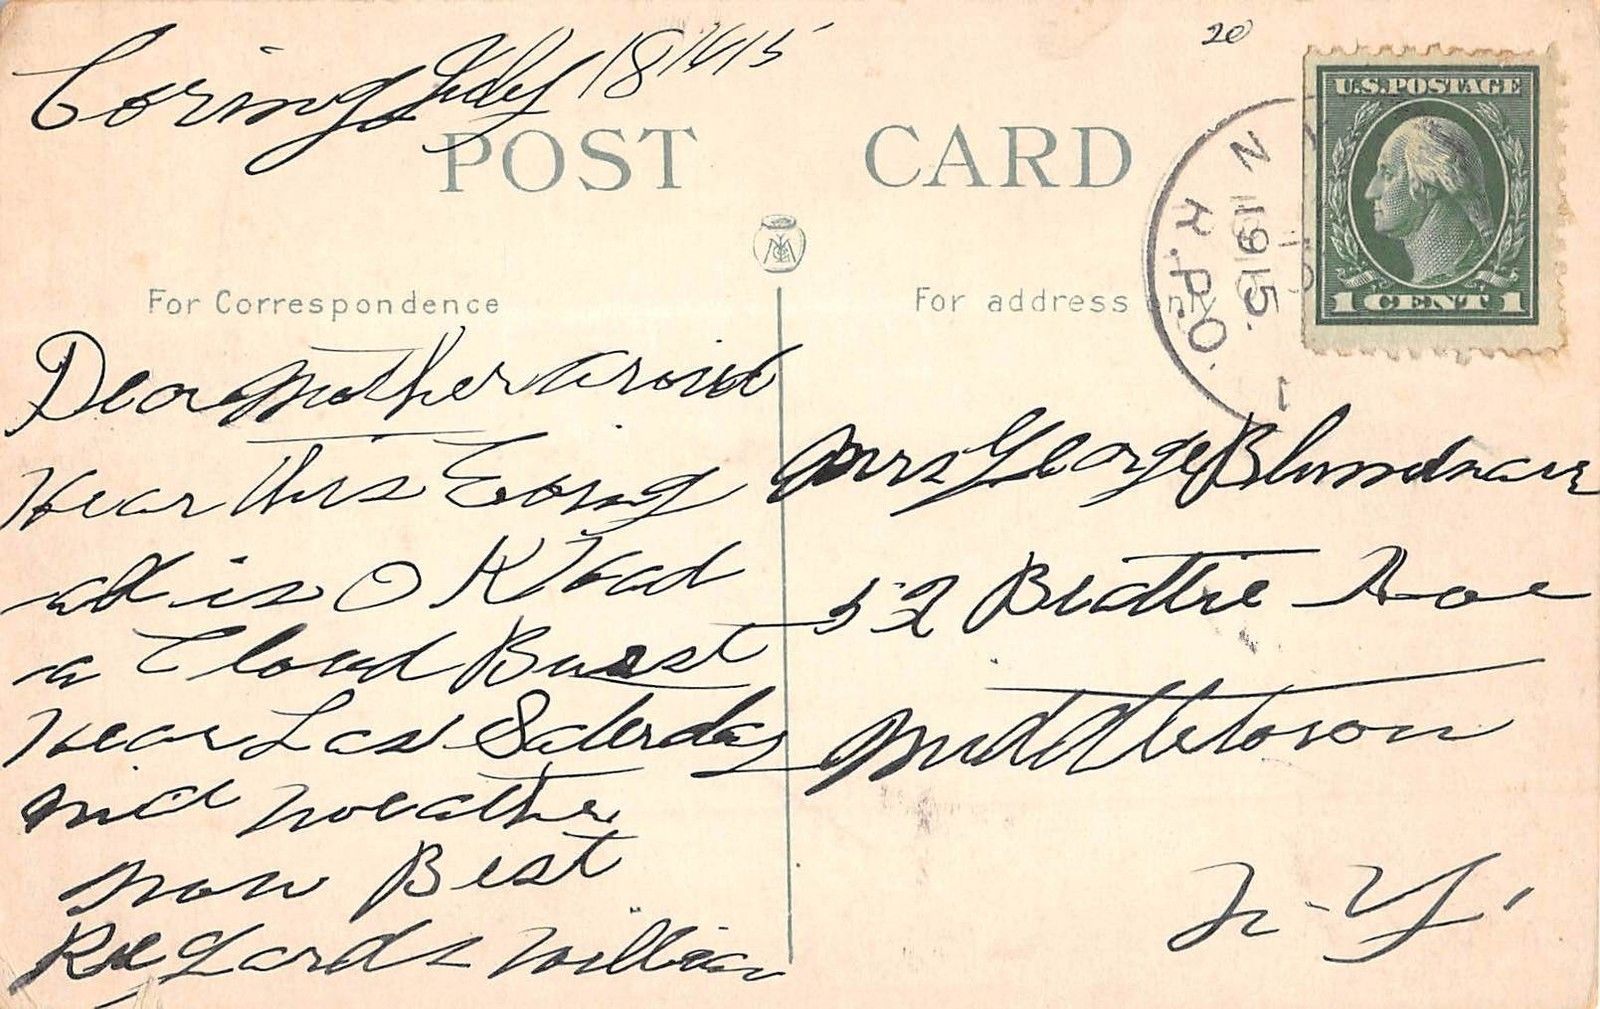 Corning July 18/1915
20
U.S. POSTAGE
1 CENT 1
N
R.P.O.
1915.
POST CARD
For Correspondence
For address only
Dear Mother arived
Hear this Evning
all is O K had
a Cloud Burst
hear Last Saterday
nice weather
now Best
Regards William
Mrs George
52 Beattie Ave
Middletown
N.Y.